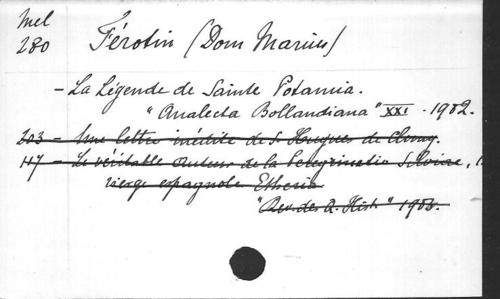 Mel
280
Férotin (Dom Marius)
- La Légende de Sainte Potamia.
"Analecta Bollandiana" XXI. 1902.
203 - Une lettre inédite de S. Hugues de Cluny.
117 - Le véritable auteur de la Peregrinatio Silviae, 
vierge espagnole Etheria
"Rev. des Q. Hist." 1903.